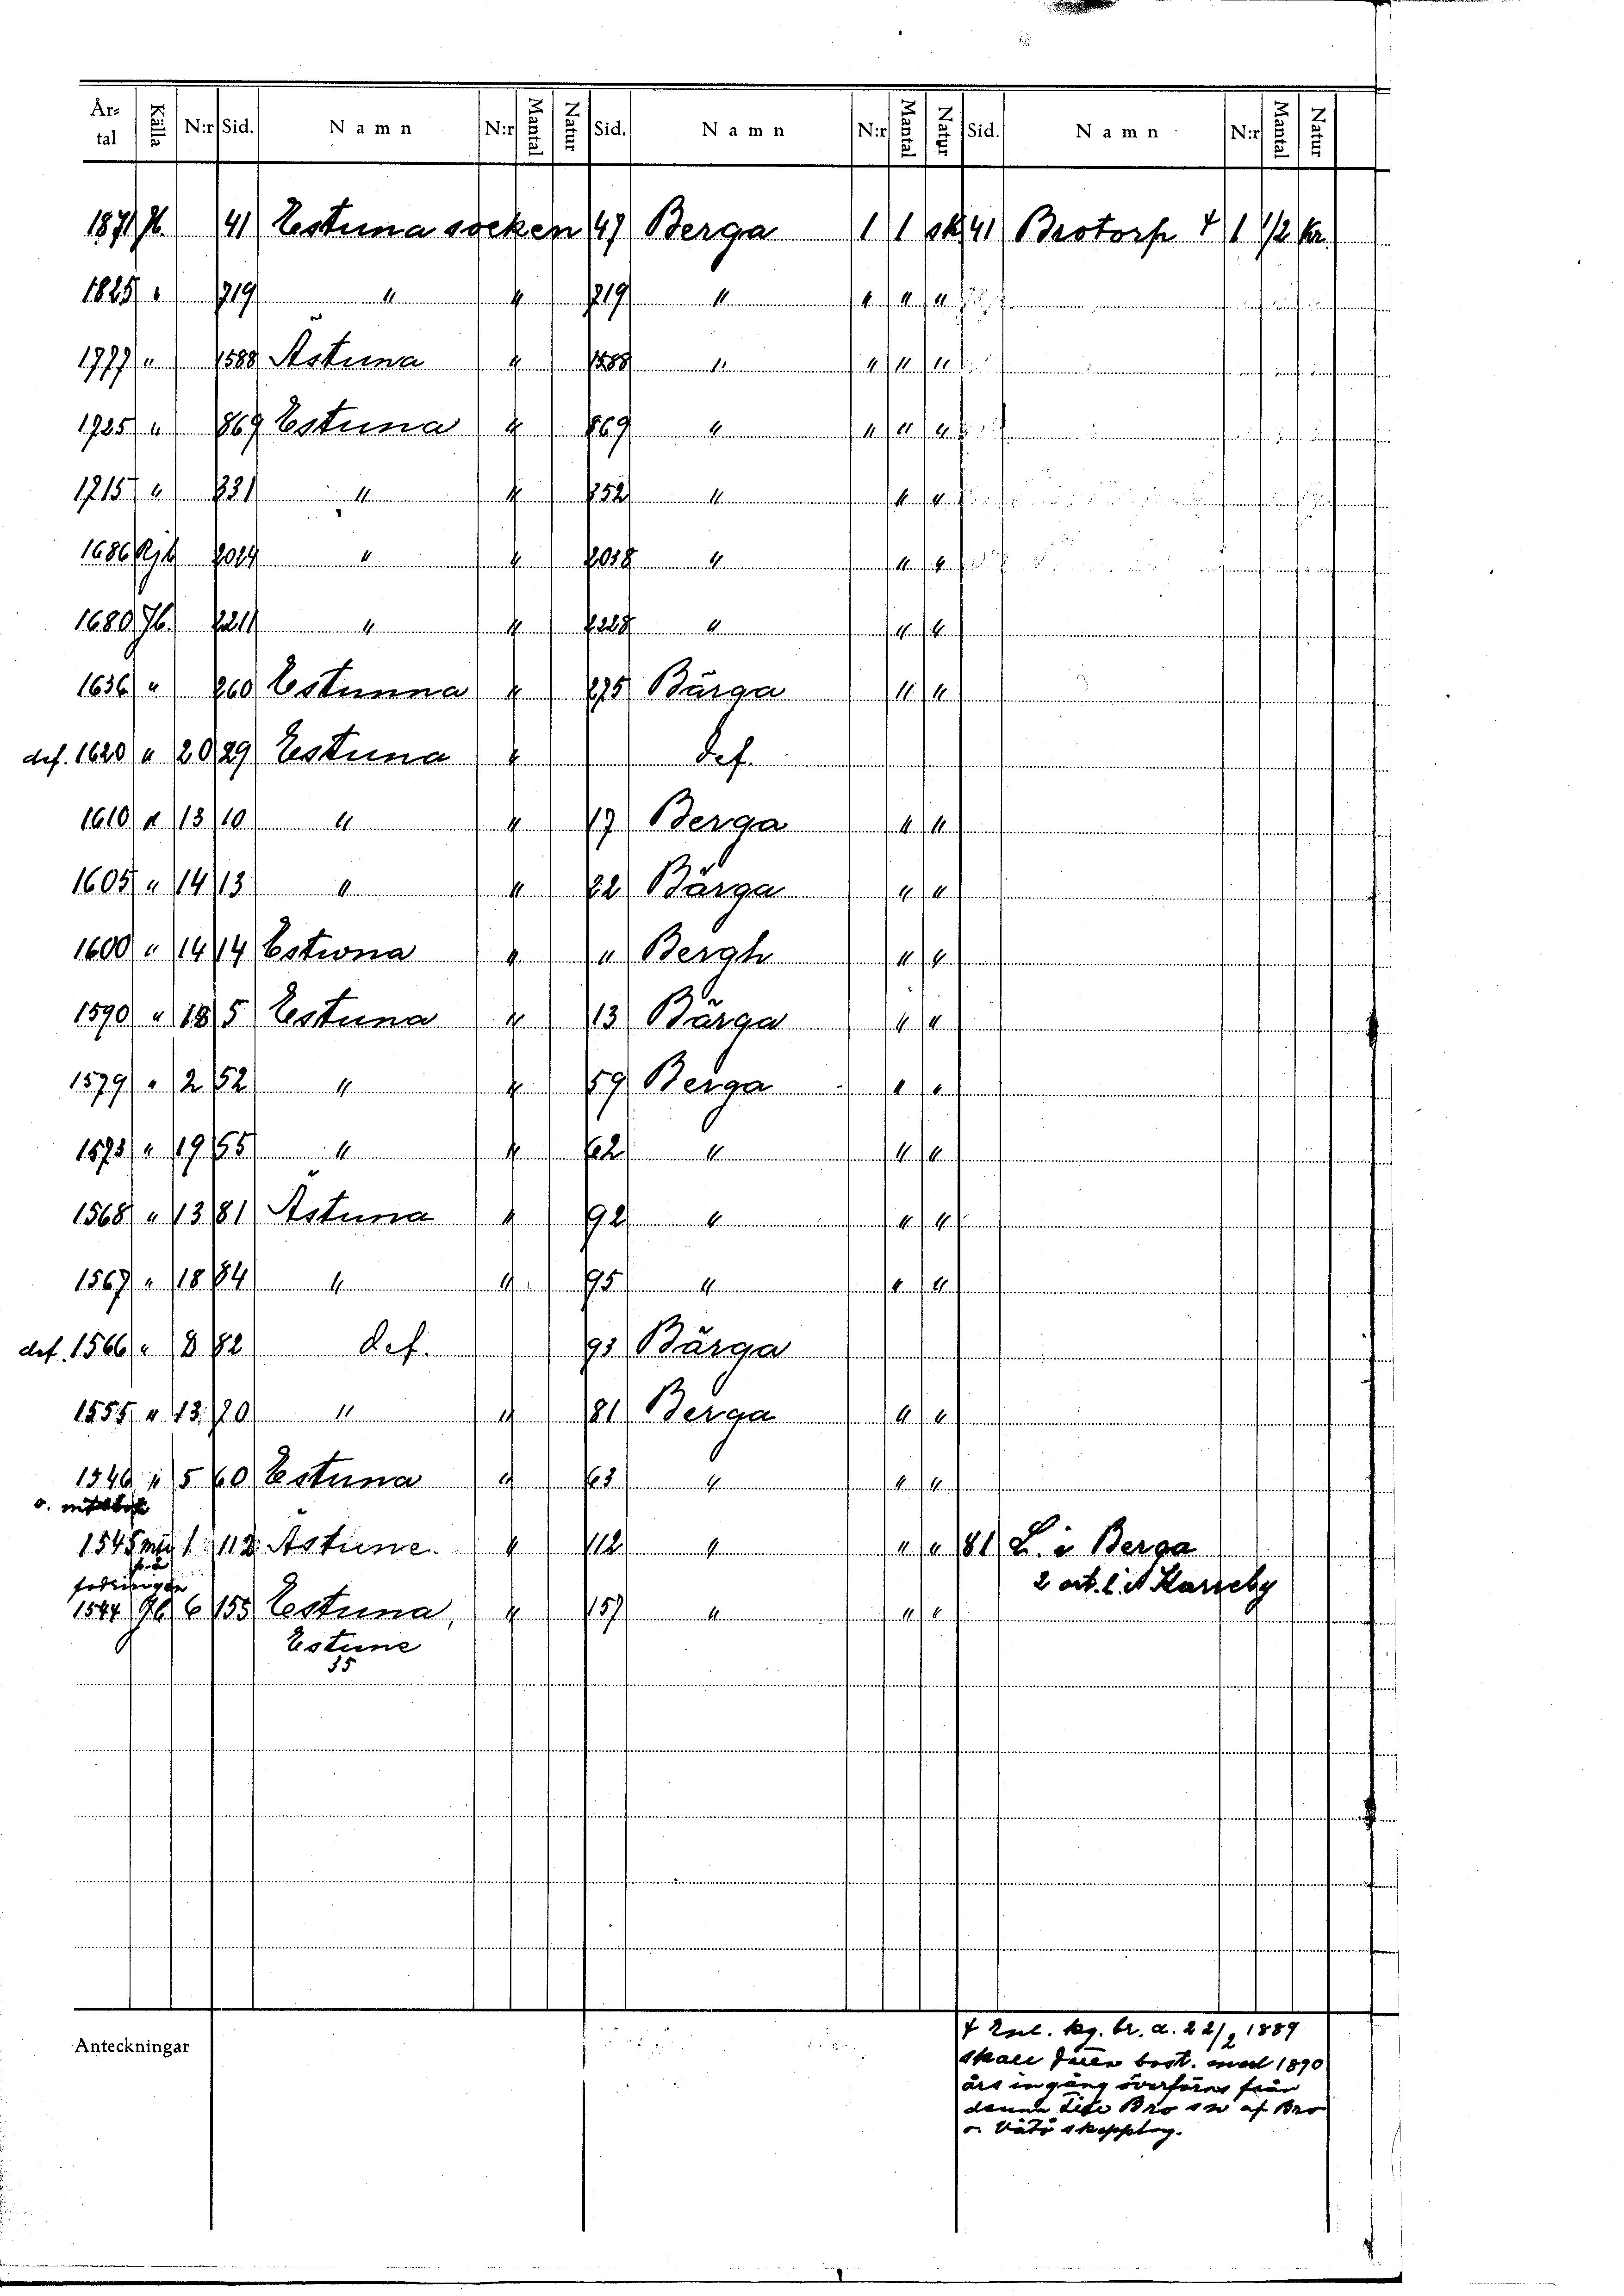 År-tal Källa N:r Sid. Namn N:r Mantal Natur Sid. Namn N:r Mantal Natur Sid. Namn N:r Mantal Natur
1871 Jb. 41 Estuna socken 47 Berga 1 1 sk 41 Brotorp + 1 1/2 kr.
1825 " 719 " " 719 " " " "
1777 " 1588 Ästuna " 1588 " " " "
1725 " 869 Estuna " 869 " " " "
1715 " 331 " " 352 " " "
1686 Rjb 2024 " " 2038 " " "
1680 Jb. 2211 " " 2228 " " "
1636 " 260 Estunna " 275 Bärga " "
def. 1620 " 20 29 Estuna " def.
1610 " 13 10 " " 17 Berga " "
1605 " 14 13 " " 22 Bärga " "
1600 " 14 14 Estwna " " Bergh " "
1590 " 18 5 Estuna " 13 Bärga " "
1579 " 2 52 " " 59 Berga " "
1573 " 19 55 " " 62 " " "
1568 " 13 81 Ästuna " 92 " " "
1567 " 18 84 " " 95 " " "
def. 1566 " 8 82 def. 93 Bärga
1555 " 13 70 " " 81 Berga " "
1546 " 5 60 Estuna " 63 " " "
1545 1 112 Astune " 112 " " " 81 L. i Berga
2 ort. i
1544 Jb 6 155 Estuna, " 157 " " "
Estune
35
Anteckningar
+ Enl. kg. br. d. 22/2 1889
skall
års ingång överföras från
denna till Bro sn af Bro
o. Vätö skeppslag.